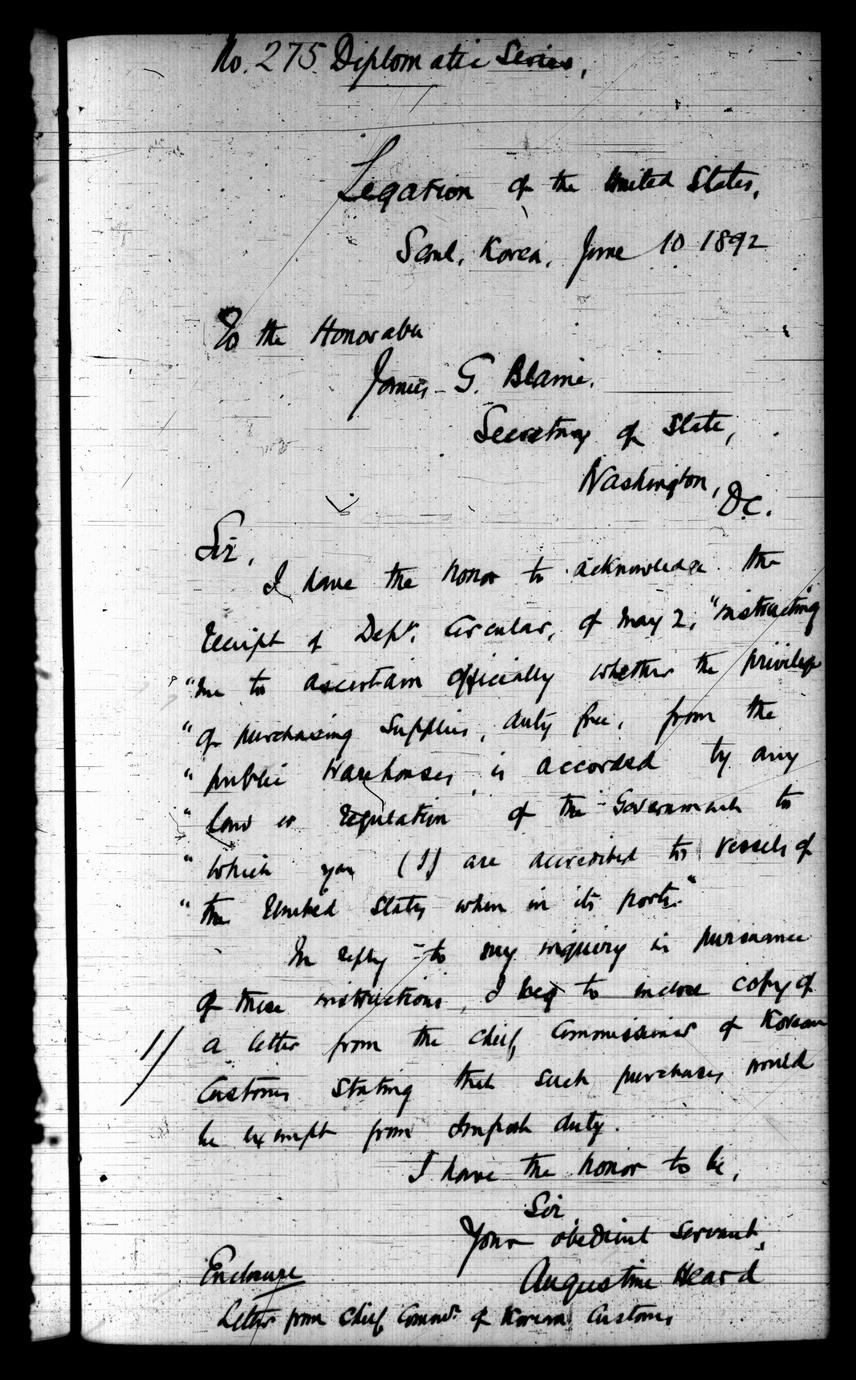 No. 275 Diplomatic Series,
Legation of the United States,
Seoul, Korea, June 10 1892
To the Honorable
James G. Blaine,
Secretary of State,
Washington,
D.C.
Sir,
I have the honor to acknowledge the
receipt of Dept. Circular, of May 2, "instructing
"me to ascertain officially whether the privilege
"of purchasing supplies, duty free, from the
"public warehouses, is accorded by any
"law or regulation of the Government to
"which you (I) are accredited to vessels of
"the United States when in its ports."
In reply to my inquiry in pursuance
of these instructions, I beg to enclose copy of
1/ a letter from the Chief Commissioner of Korean
Customs stating that such purchases would
be exempt from Import duty.
I have the honor to be,
Sir
Your obedient servant,
Augustine Heard
Enclosure
Letter from Chief Commr. of Korean Customs